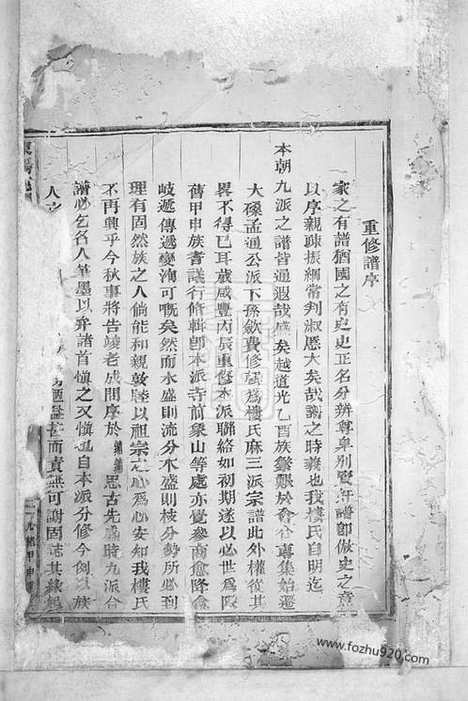 重修譜序
家之有譜猶國之有史史正名分辨尊卑別賢奸譜即倣史之意
以序親疎振綱常判淑慝大矣哉譜之時義也我樓氏自明迄
本朝九派之譜皆通遐哉盛矣越道光乙酉族繁艱於會合專集始遷
大磉孟通公派下孫歛費修葺為樓氏麻三派宗譜此外權從其
畧不得已耳歲咸豐丙辰重修本派聯絡如初期遂以必世為限
舊甲申族耆議行修輯卽本派寺前象山等處亦覺參商愈降愈
岐遞傳遞變洵可嘅矣然而水盛則流分木盛則枝分勢所必到
理有固然族之人倘能和親敦睦以祖宗之心為心安知我樓氏
不再興乎今秋事將告竣老成問序於 思古先盛時九派合
譜必乞名人筆墨以弁諸首慎之又慎也自本派分修今倒 族
人之 而責無可謝固誌其緣
www.fozhu920.com